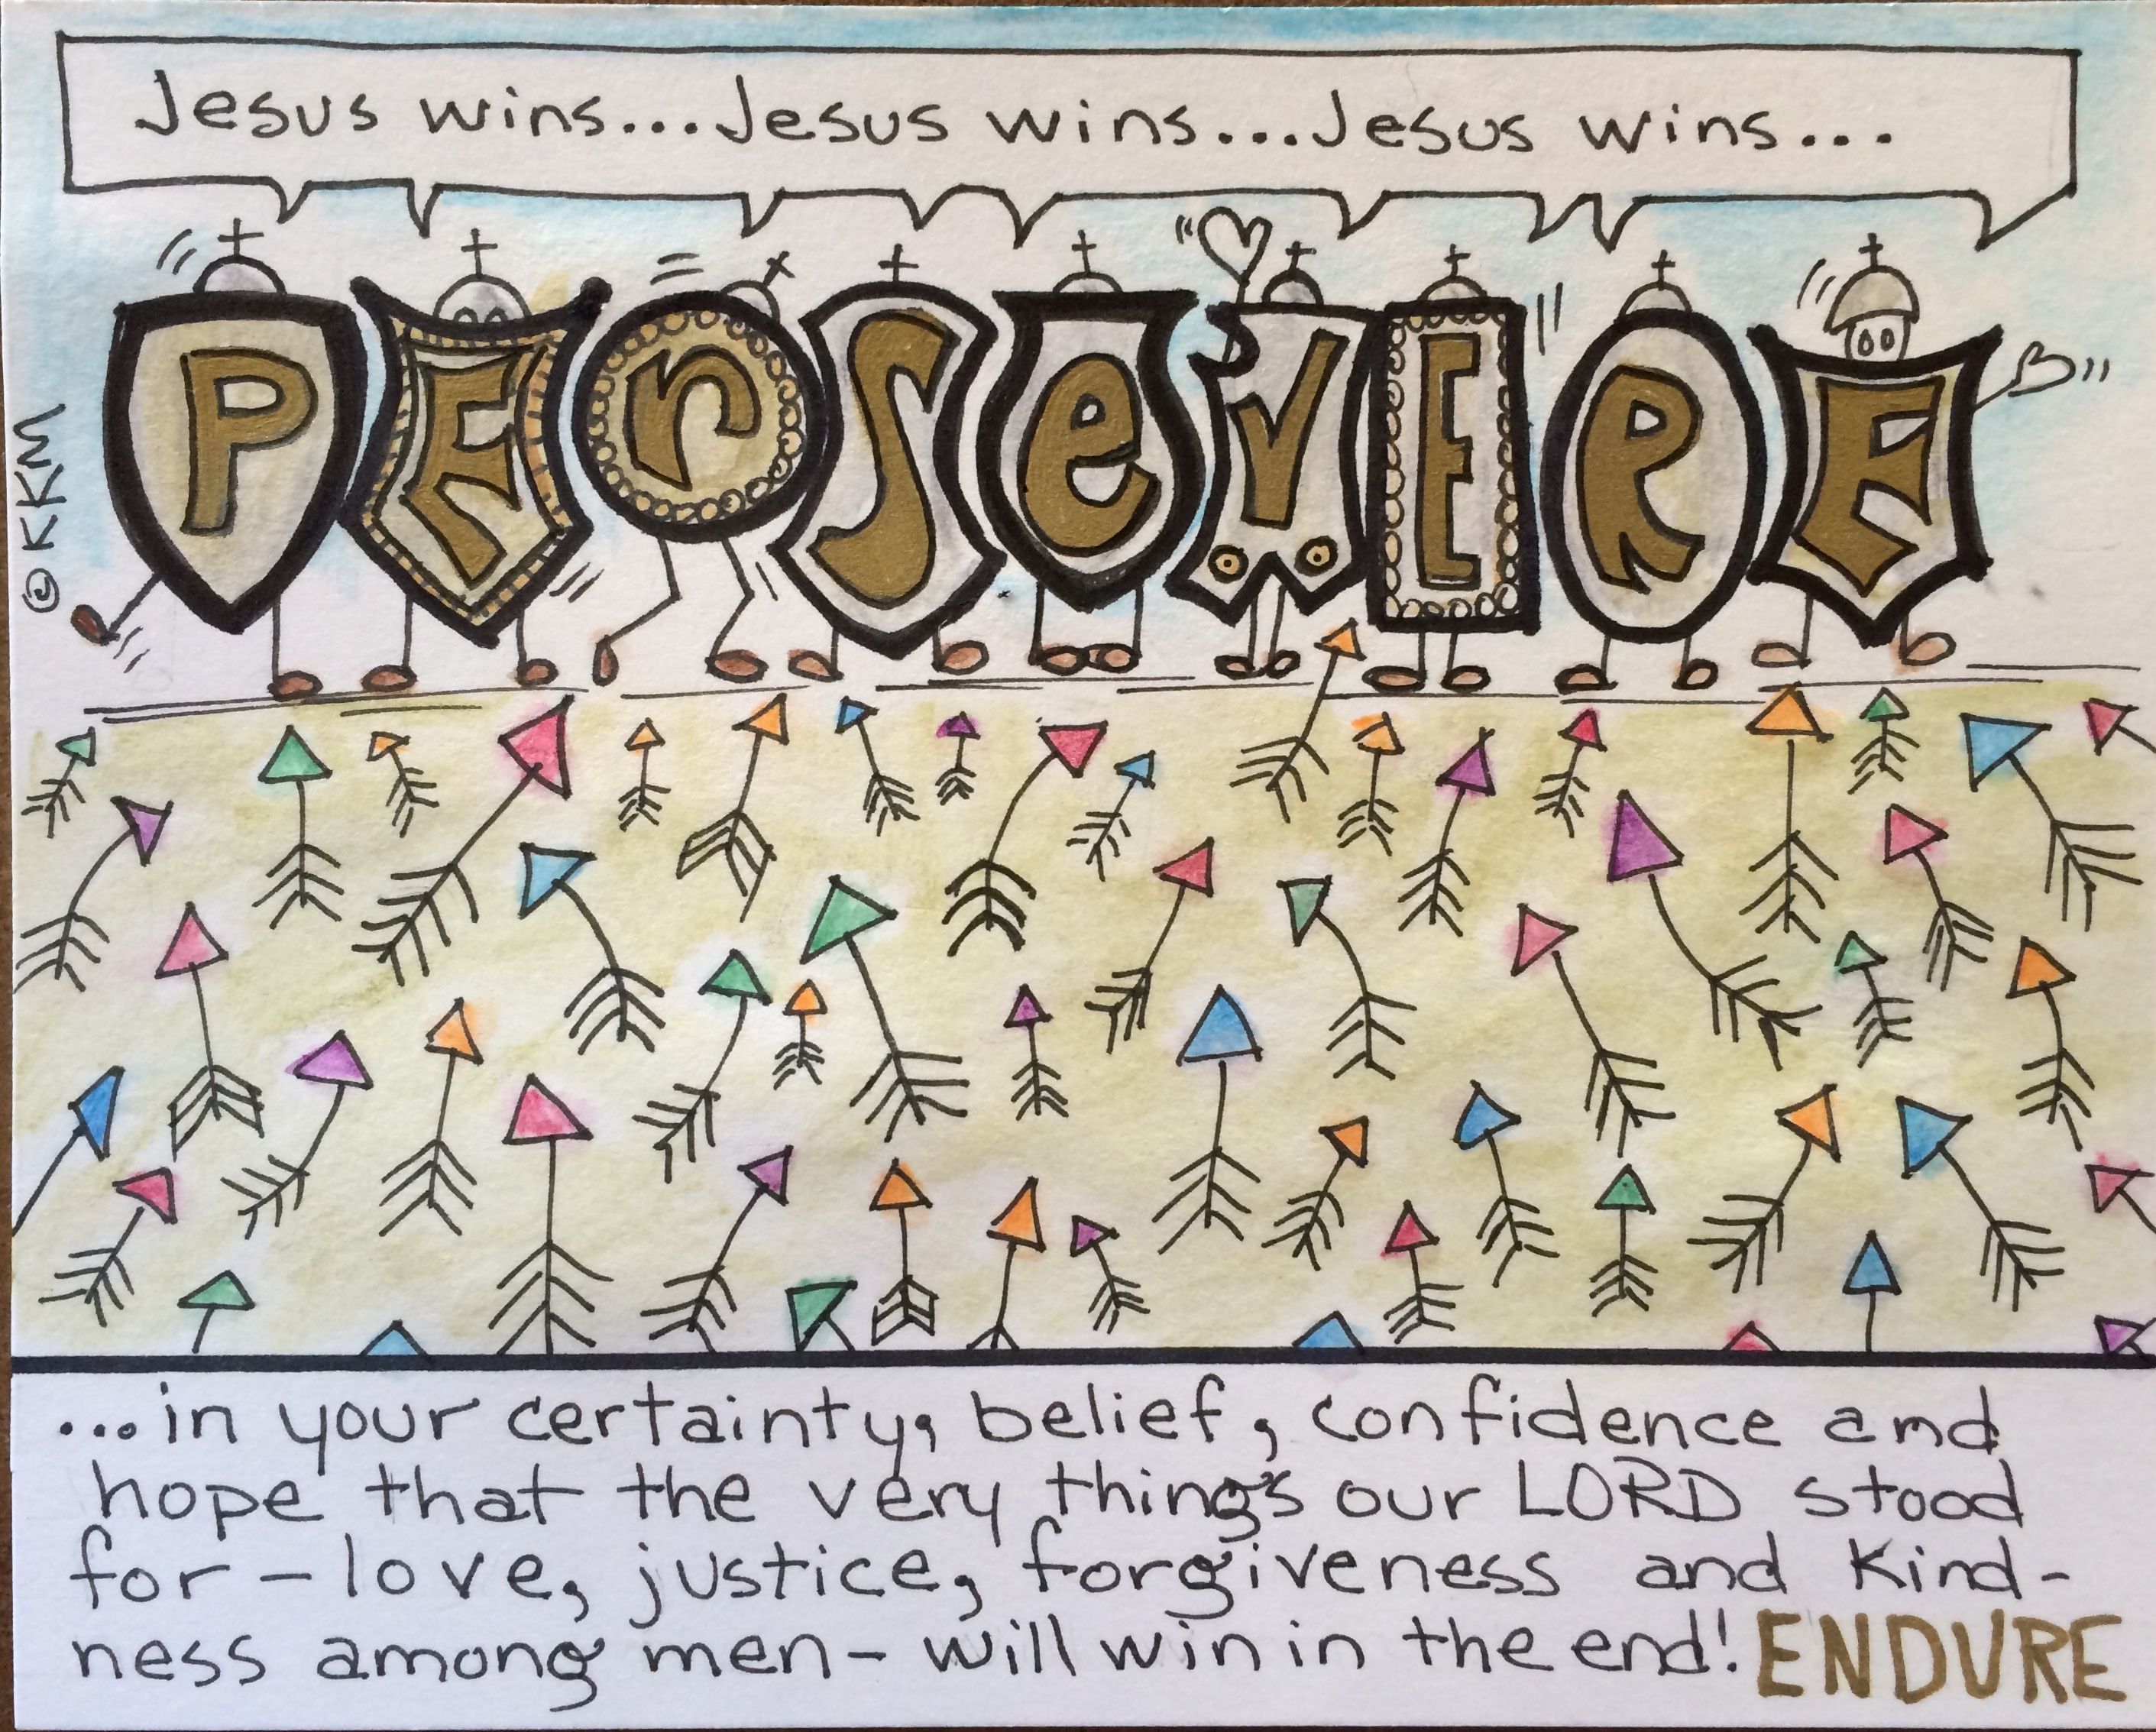 Jesus wins...Jesus wins...Jesus wins...
PErSeVERE
© KKM
...in your certainty, belief, confidence and
hope that the very things our LORD stood
for - love, justice, forgiveness and kind-
ness among men - will win in the end! ENDURE